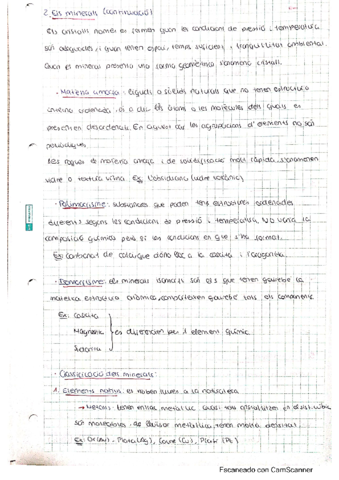 2. Els minerals (continuació)
Els cristalls només es formen quan les condicions de pressió i temperatura
són adequades i quan tenen espai, temps suficient i tranquil·litat ambiental.
Quan els minerals presenta una forma geomètrica s'anomena cristall.
· Matèria amorfa: líquids o sòlids naturals que no tenen estructura
cristal·lina ordenada, és a dir, els àtoms o les molècules dels quals es
presenten desordenats. En aquest cas les agrupacions d'elements no són
periòdiques.
Les roques de matèria amorfa i de solidificació molt ràpida s'anomenen
vidre o textura vítria. Ex: L'obsidiana (vidre volcànic)
· Polimorfisme: substàncies que poden tenir estructures ordenades
diferents segons les condicions de pressió i temperatura. NO varia la
composició química però sí les condicions en què s'han format.
Ex: Carbonat de calci que dóna lloc a la calcita i l'aragonita.
· Isomorfisme: els minerals isomorfs són els que tenen gairebé la
mateixa estructura atòmica, comparteixen gairebé tots els components
Ex: Calcita
Magnesita } es diferencien per 1 element químic
Siderita
· Classificació dels minerals:
1. Elements natius: es troben lliures a la naturalesa
→ Metalls: tenen enllaç metàl·lic, quasi tots cristal·litzen en el sist. cúbic
són
Ex: Or (Au), Plata (Ag), Coure (Cu), Platí (Pt)
Escaneado con CamScanner